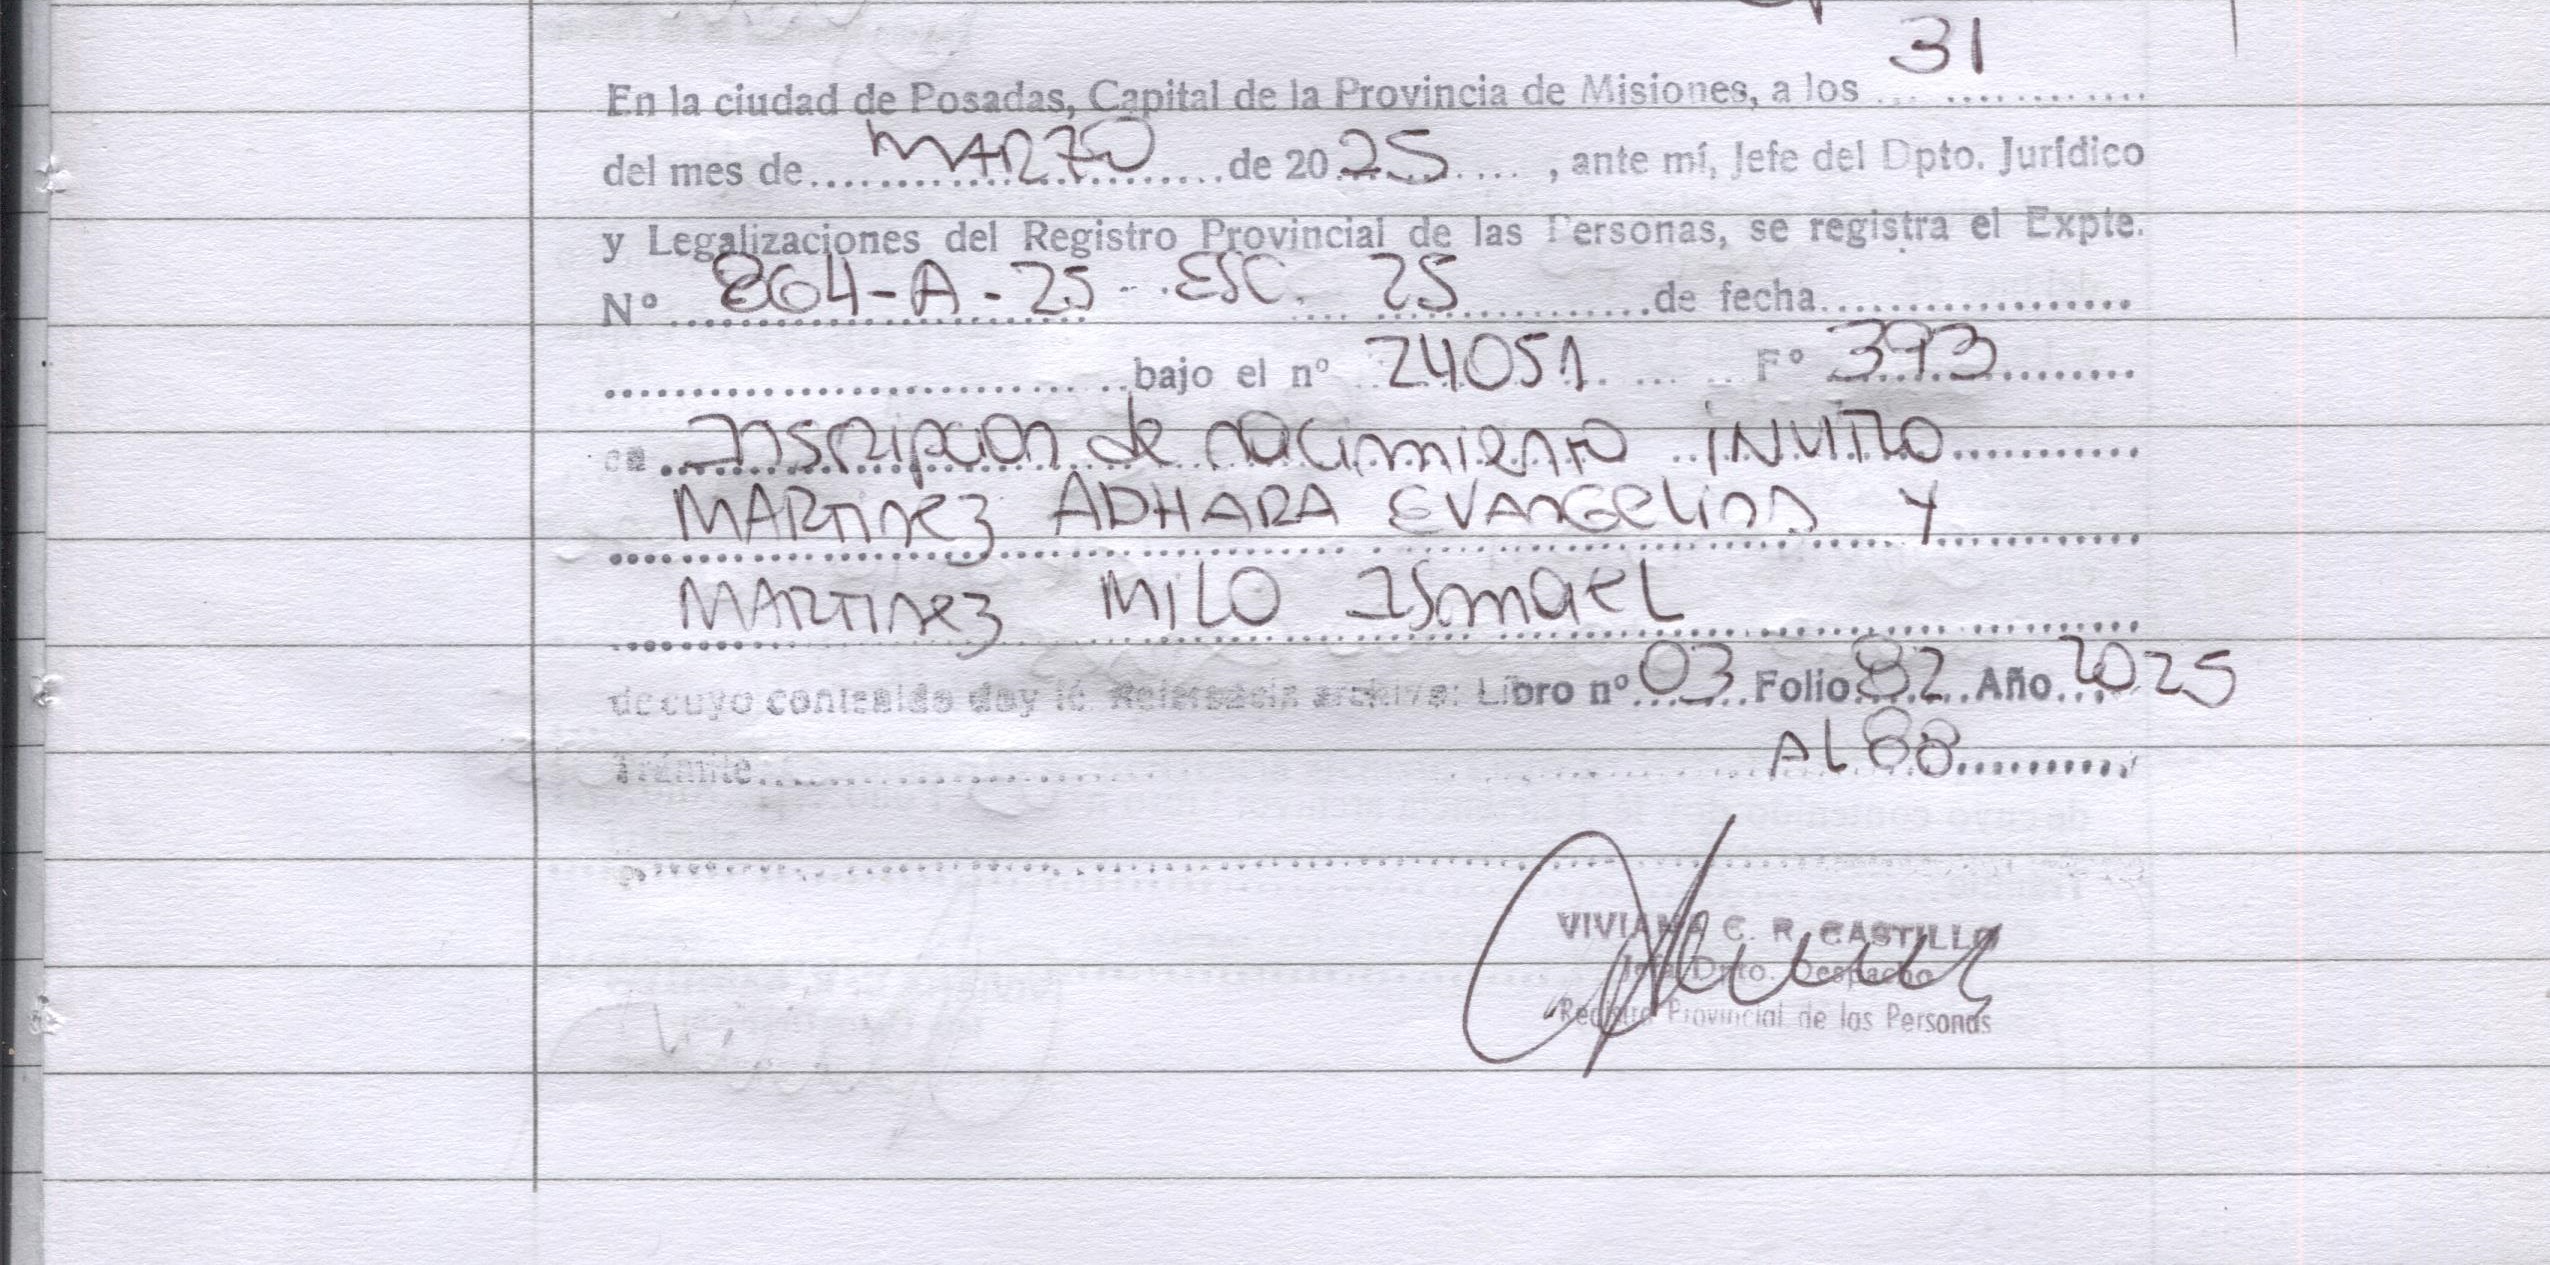 31
En la ciudad de Posadas, Capital de la Provincia de Misiones, a los ................
del mes de..........MARZO..........de 20 25 ........, ante mí, Jefe del Dpto. Jurídico
y Legalizaciones del Registro Provincial de las Personas, se registra el Expte.
Nº 864-A-25 - ESC. 25 ..........de fecha..................
..............................bajo el nº 24051 ........ Fº 393..........
en Inscripcion de nacimiento INVITRO..........
MARTINEZ ADHARA EVANGELINA Y
MARTINEZ MILO ISMAEL
de cuyo contenido doy fé. Referencia archivo: Libro nº 03 Folio 82 Año 2025
Trámite.................... AL 88..........
VIVIANA C. R. CASTILLO
Jefa Dpto. Despacho
Registro Provincial de las Personas